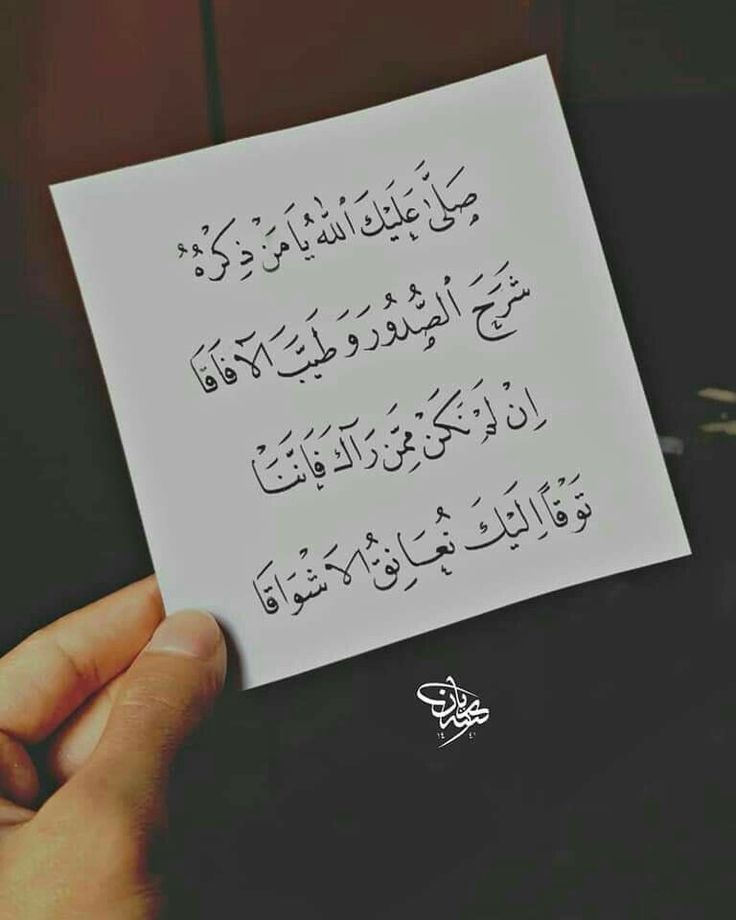 صَلَّىٰ عَلَيْكَ ٱللهُ يَا مَنْ ذِكْرُهُ
شَرَحَ ٱلصُّدُورَ وَطَيَّبَ الآفَاقَا
اِنْ لَمْ نَكُنْ مِمَّنْ رَآكَ فَاِنَّنَا
تَوْقاً اِلَيْكَ نُعَانِقُ الاَشْوَاقَا